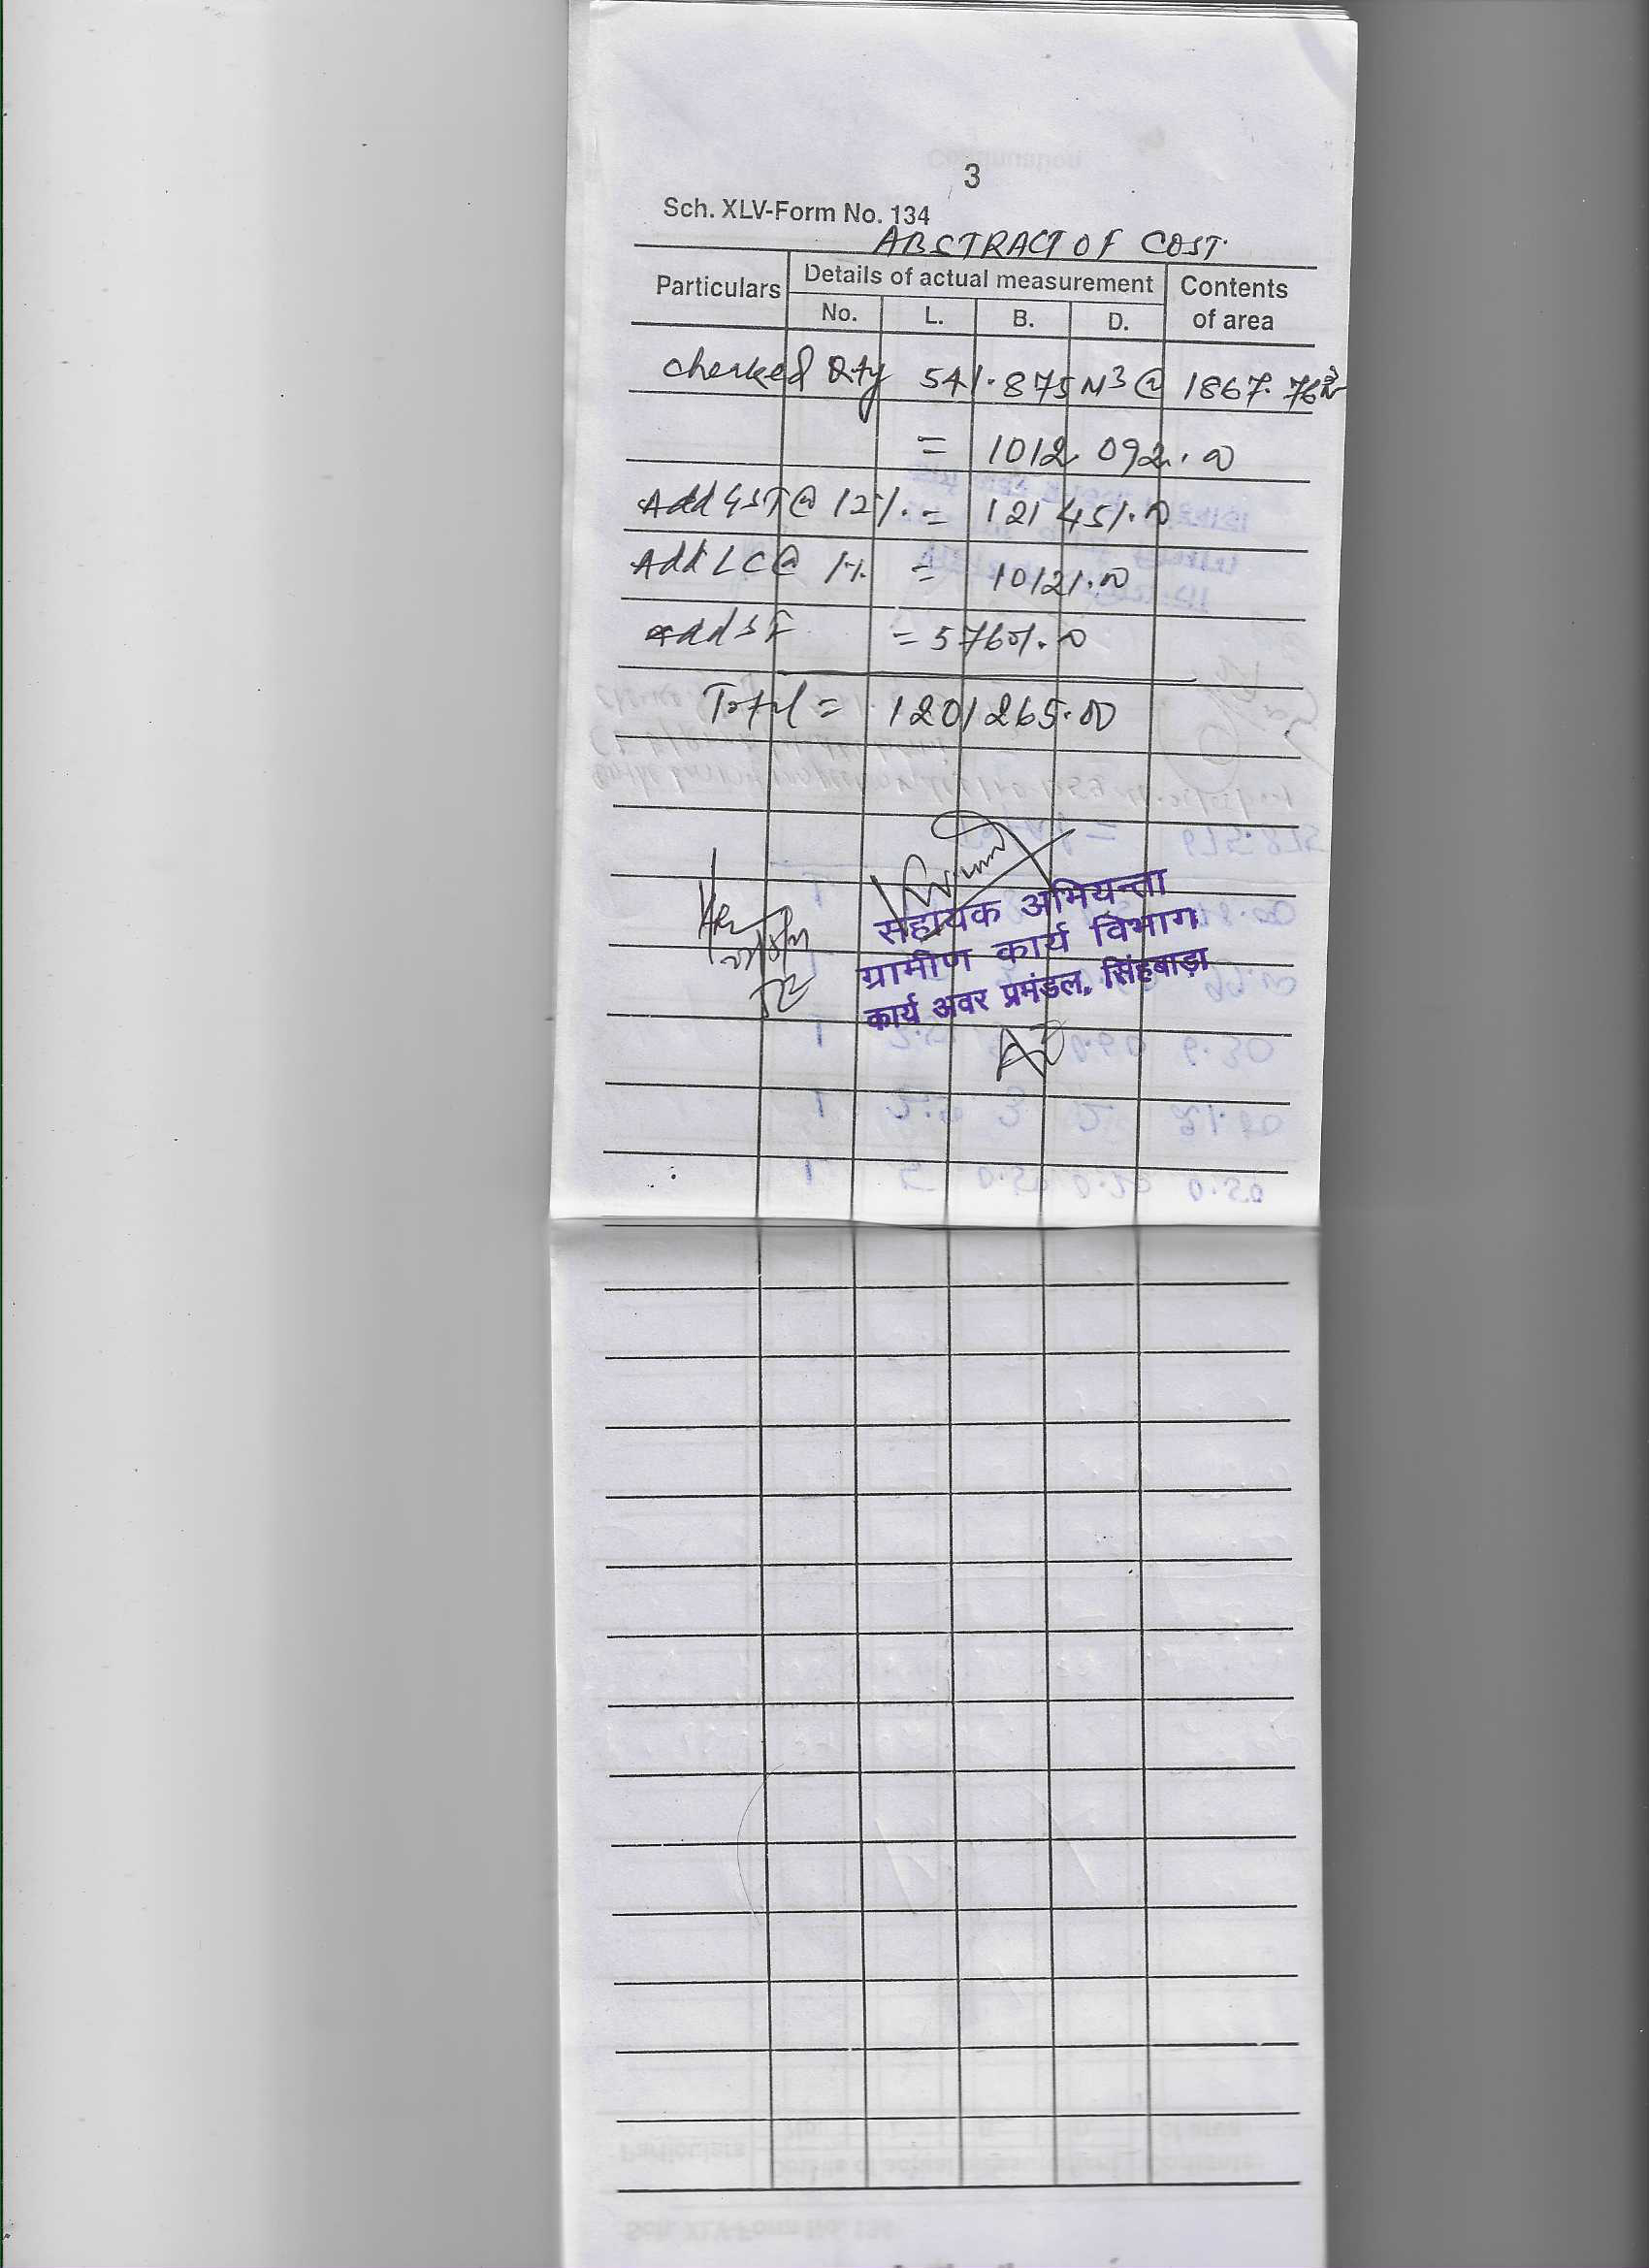 3
Sch. XLV-Form No. 134
ABSTRACT OF COST
Particulars Details of actual measurement Contents of area
No. L. B. D.
Checked Qty 541.875 M3 @ 1867.76
= 1012092.00
Add GST @ 12%. = 121451.00
Add LC @ 1%. = 10121.00
Add SF = 57601.00
Total = 1201265.00
सहायक अभियन्ता
ग्रामीण कार्य विभाग
कार्य अवर प्रमंडल, सिंहबाड़ा
JE
AE